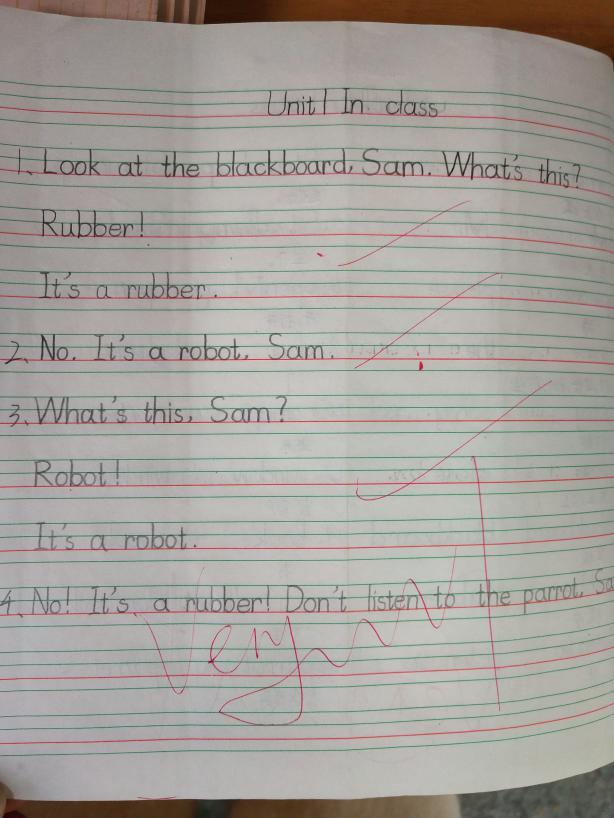 Unit 1 In class
1. Look at the blackboard, Sam. What's this?
Rubber!
It's a rubber.
2. No. It's a robot, Sam.
3. What's this, Sam?
Robot!
It's a robot.
4. No! It's a rubber! Don't listen to the parrot, Sa
Very